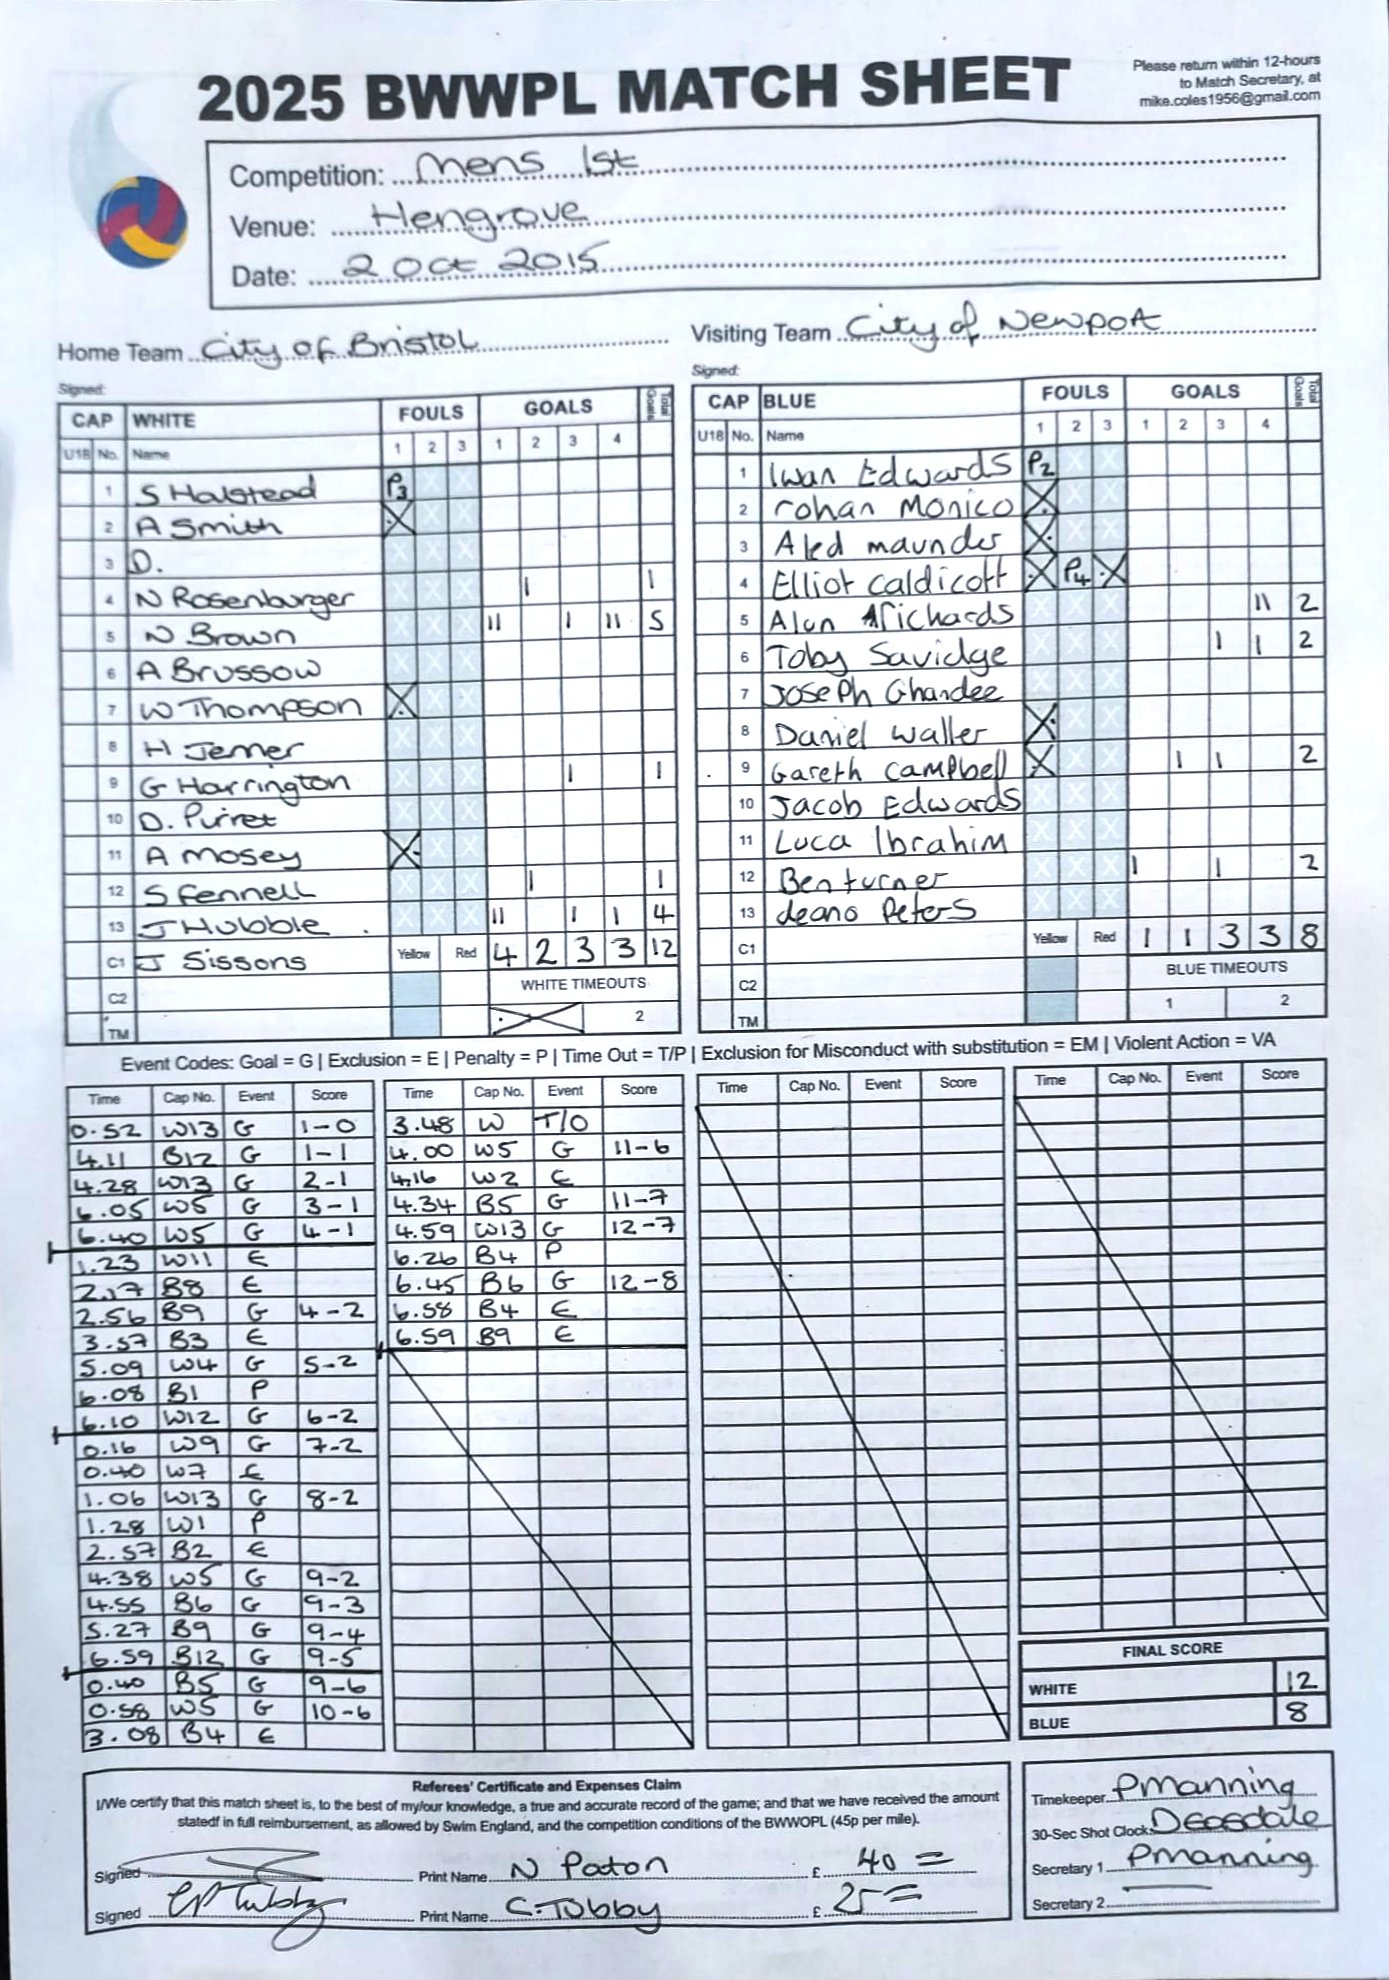 2025 BWWPL MATCH SHEET
Please return within 12-hours
to Match Secretary, at
mike.coles1956@gmail.com
Competition: Mens 1st
Venue: Hengrove
Date: 2 Oct 2015
Home Team City of Bristol
Visiting Team City of Newport
Signed:
CAP WHITE FOULS GOALS Total Goals
U18 No. Name 1 2 3 1 2 3 4
1 S Halstead P3
2 A Smith X
3 D.
4 N Rosenburger I 1
5 N Brown II I II 5
6 A Brussow
7 W Thompson X
8 H Jenner
9 G Harrington I 1
10 D. Pirret
11 A Mosey X
12 S Fennell I 1
13 J Hubble II I I 4
C1 J Sissons Yellow Red 4 2 3 3 12
C2 WHITE TIMEOUTS
TM X 2
Signed:
CAP BLUE FOULS GOALS Total Goals
U18 No. Name 1 2 3 1 2 3 4
1 Iwan Edwards P2
2 rohan Monico X
3 Aled maunder X
4 Elliot Caldicott X P4 X
5 Alun Richards II 2
6 Toby Savidge I I 2
7 Joseph Ghandee
8 Daniel Waller X
9 Gareth Campbell X I I 2
10 Jacob Edwards
11 Luca Ibrahim
12 Ben turner I I 2
13 deano Peters
C1 Yellow Red 1 1 3 3 8
C2 BLUE TIMEOUTS
TM 1 2
Event Codes: Goal = G | Exclusion = E | Penalty = P | Time Out = T/P | Exclusion for Misconduct with substitution = EM | Violent Action = VA
Time Cap No. Event Score
0.52 W13 G 1-0
4.11 B12 G 1-1
4.28 W13 G 2-1
6.05 W5 G 3-1
6.40 W5 G 4-1
1.23 W11 E
2.17 B8 E
2.56 B9 G 4-2
3.57 B3 E
5.09 W4 G 5-2
6.08 B1 P
6.10 W12 G 6-2
0.16 W9 G 7-2
0.40 W7 E
1.06 W13 G 8-2
1.28 W1 P
2.57 B2 E
4.38 W5 G 9-2
4.55 B6 G 9-3
5.27 B9 G 9-4
6.59 B12 G 9-5
0.40 B5 G 9-6
0.58 W5 G 10-6
3.08 B4 E
Time Cap No. Event Score
3.48 W T/O
4.00 W5 G 11-6
4.16 W2 E
4.34 B5 G 11-7
4.59 W13 G 12-7
6.26 B4 P
6.45 B6 G 12-8
6.58 B4 E
6.59 B9 E
Time Cap No. Event Score
Time Cap No. Event Score
FINAL SCORE
WHITE 12
BLUE 8
Referees' Certificate and Expenses Claim
I/We certify that this match sheet is, to the best of my/our knowledge, a true and accurate record of the game; and that we have received the amount
statedf in full reimbursement, as allowed by Swim England, and the competition conditions of the BWWOPL (45p per mile).
Signed Print Name N Paton £ 40 =
Signed Print Name C. Tubby £ 25 =
Timekeeper PManning
30-Sec Shot Clock
Secretary 1 PManning
Secretary 2